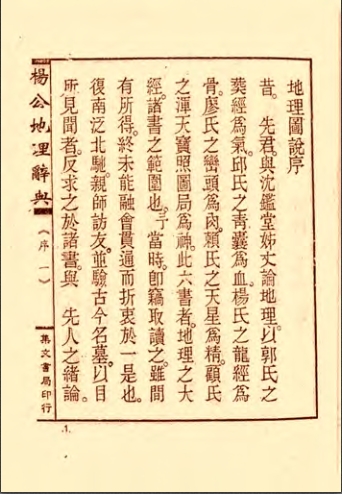 地理圖說序
昔。先君。與沈鑑堂姊丈論地理。以郭氏之
葬經爲氣。邱氏之靑囊爲血。楊氏之龍經爲
骨。廖氏之巒頭爲肉。賴氏之天星爲精。顧氏
之渾天寶照圖局爲神。此六書者。地理之大
經。諸書之範圍也。予當時。卽竊取讀之。雖間
有所得。終未能融會貫通而折衷於一是也。
復南泛北馳。親師訪友。並驗古今名墓。以目
所見聞者。反求之於諸書。與 先人之緒論。
楊公地理辭典
《序 一》
集文書局印行
.1.